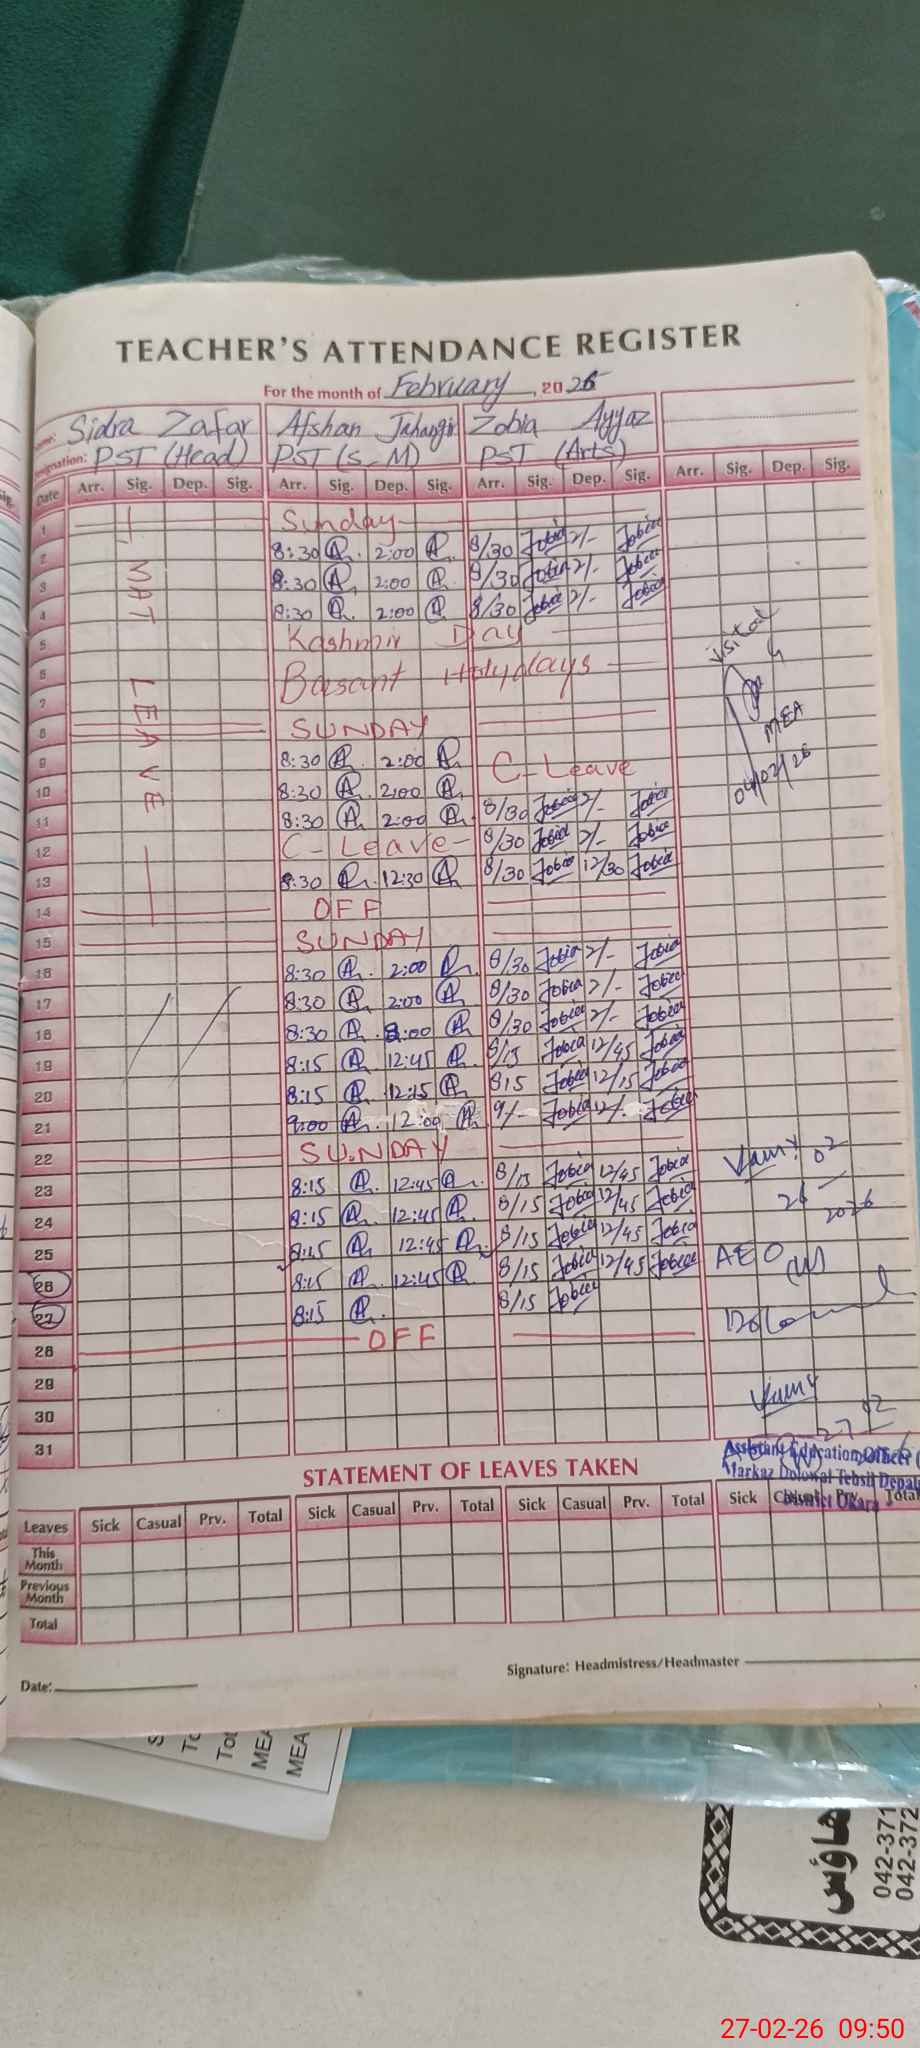 TEACHER'S ATTENDANCE REGISTER
For the month of February, 2026
Name: Sidra Zafar Afshan Jahangir Zobia Ayyaz
Designation: PST (Head) PST (S-M) PST (Arts)
Date Arr. Sig. Dep. Sig. Arr. Sig. Dep. Sig. Arr. Sig. Dep. Sig. Arr. Sig. Dep. Sig.
MAT LEAVE
1 Sunday
2 8:30 2:00 8/30 Zobia 2/- Zobia
3 8:30 2:00 8/30 Zobia 2/- Zobia
4 8:30 2:00 8/30 Zobia 2/- Zobia
5 Kashmir Day
6 Basant Holydays
7
8 SUNDAY
9 8:30 2:00 C-Leave
10 8:30 2:00
11 8:30 2:00 8/30 Zobia 2/- Zobia
12 C-Leave 8/30 Zobia 2/- Zobia
13 8:30 12:30 8/30 Zobia 12/30 Zobia
14 OFF
15 SUNDAY
16 8:30 2:00 8/30 Zobia 2/- Zobia
17 8:30 2:00 8/30 Zobia 2/- Zobia
18 8:30 2:00 8/30 Zobia 2/- Zobia
19 8:15 12:45 8/15 Zobia 12/45 Zobia
20 8:15 12:15 815 Zobia 12/15 Zobia
21 9:00 12:00 9/- Zobia 12/- Zobia
22 SUNDAY
23 8:15 12:45 8/15 Zobia 12/45 Zobia
24 8:15 12:45 8/15 Zobia 12/45 Zobia
25 8:15 12:45 8/15 Zobia 12/45 Zobia
26 8:15 12:45 8/15 Zobia 12/45 Zobia
27 8:15 8/15 Zobia
28 OFF
29
30
31
Visited
MEA
04/02/26
26 02
2026
AEO
(W)
27 02
Assistant Education Officer
Markaz Dolowal Tehsil Depal
District Okara
STATEMENT OF LEAVES TAKEN
Leaves Sick Casual Prv. Total Sick Casual Prv. Total Sick Casual Prv. Total Sick Casual Prv. Total
This Month
Previous Month
Total
Signature: Headmistress/Headmaster
Date:
MEA
MEA
ہاؤس
042-371
042-372
27-02-26 09:50